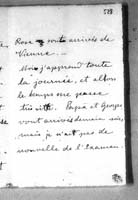 Rose y sont arrivés de
Vienne. —
Moi j'apprend toute
la journée, et alors
le temps me passe
très vite. Papa et Georges
vont arrivés demain soir,
mais je n'ai pas de
nouvelle de l'examen.